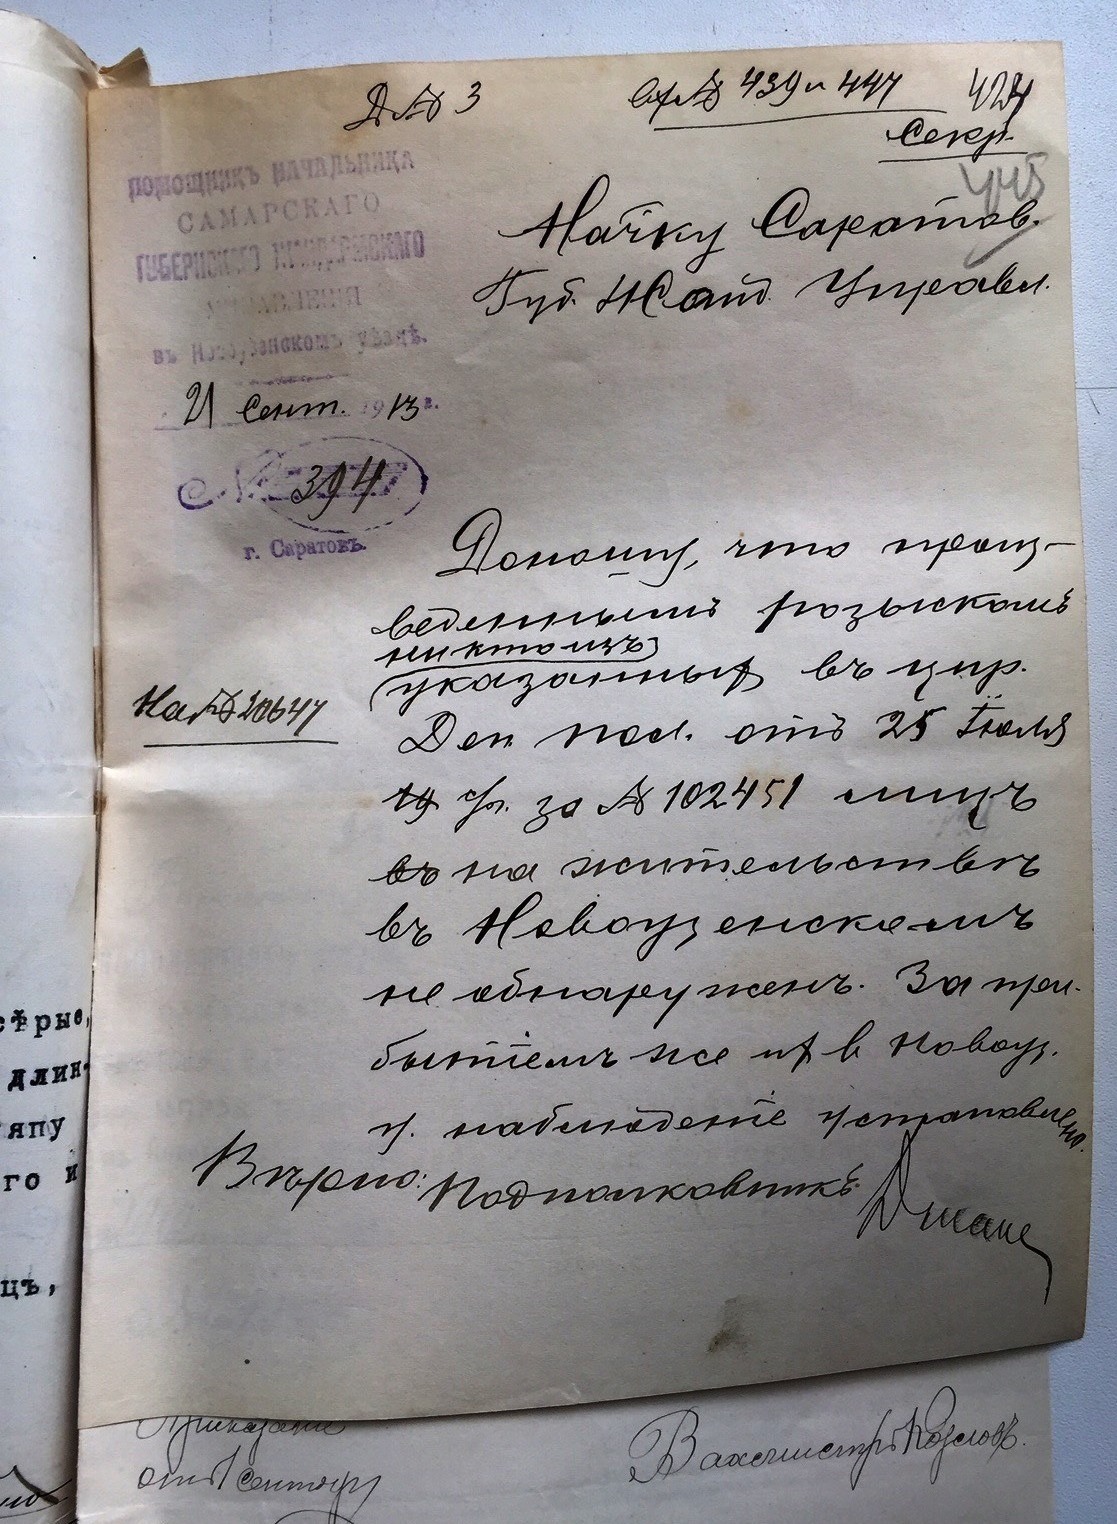 Д № 3
вх № 439 и 447
424
Секр.
445
ПОМОЩНИКЪ НАЧАЛЬНИКА
САМАРСКАГО
ГУБЕРНСКАГО ЖАНДАРМСКАГО
УПРАВЛЕНІЯ
въ Новоузенскомъ уѣздѣ.
21 Сент. 1913 г.
№ 394
г. Саратовъ.
Нач-ку Саратов.
Губ. Жанд. Управл.
Доношу, что произ-
веденнымъ розыскомъ
никто изъ
указанныхъ въ цир.
На № 20647
Деп. пол. отъ 25 Іюля
с/г. за № 102451 лицъ
на жительствѣ
въ Новоузенскомъ
не обнаруженъ. За при-
бытіемъ же их в Новоуз.
у. наблюденіе установлено.
Вѣрно: Подполковникъ
стрые,
длин-
япу
го и
цъ,
Приказаніе
отъ 1 сентяб
Вахмистръ Козловъ.